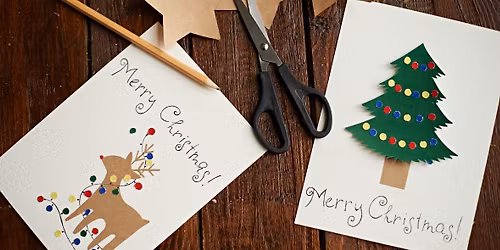 Merry Christmas!
Merry Christmas!